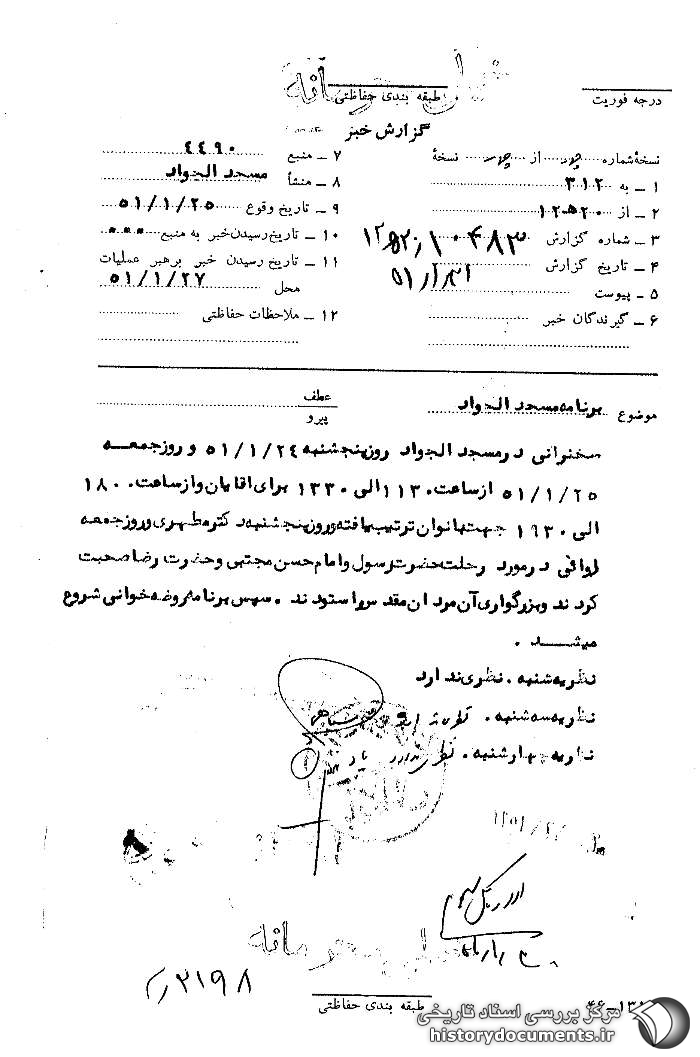 خیلی محرمانه
درجه فوریت
طبقه بندی حفاظتی
گزارش خبر
نسخهٔ شماره از نسخهٔ
۱ - به ۳۱۲
۲ - از ۱۲ ﻫ ۲۰
۳ - شماره گزارش ۱۰۴۸۳
۴ - تاریخ گزارش
۵ - پیوست
۶ - گیرندگان خبر
۷ - منبع ۴۴۹۰
۸ - منشأ مسجد الجواد
۹ - تاریخ وقوع ۵۱/۱/۲۵
۱۰ - تاریخ رسیدن خبر به منبع ۰۰۰
۱۱ - تاریخ رسیدن خبر برهبر عملیات
محل ۵۱/۱/۲۷
۱۲ - ملاحظات حفاظتی
موضوع برنامه مسجد الجواد
عطف
پیرو
سخنرانی درمسجد الجواد روزپنجشنبه ۵۱/۱/۲۴ و روزجمعه
۵۱/۱/۲۵ ازساعت ۱۱۳۰ الی ۱۳۳۰ برای اقایان وازساعت ۱۸۰۰
الی ۱۹۳۰ جهت بانوان ترتیب یافته وروزپنجشنبه دکترمطهری وروزجمعه
درمورد رحلت حضرت رسول وامام حسن مجتبی وحضرت رضا صحبت
کردند وبزرگواری آن مردان مقدس راستودند . سپس برنامه روضه خوانی شروع
میشد .
نظریه شنبه . نظری ندارد
نظریه سه شنبه .
نظریه چهارشنبه .
خیلی محرمانه
۲۱۹۸
طبقه بندی حفاظتی
مرکز بررسی اسناد تاریخی
historydocuments.ir